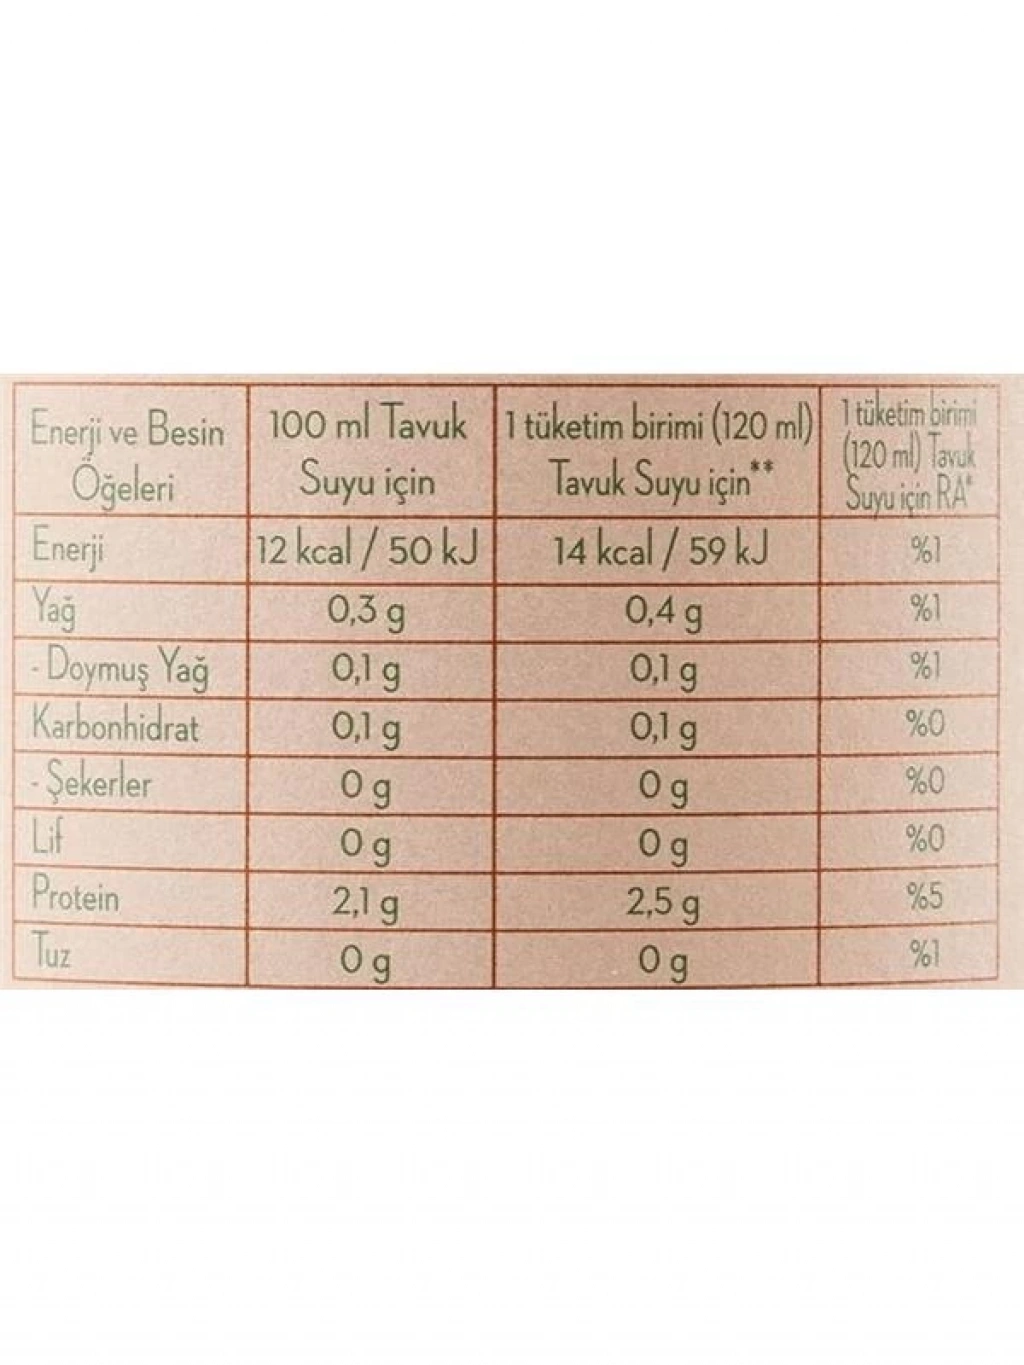 Enerji ve Besin Öğeleri 100 ml Tavuk Suyu için 1 tüketim birimi (120 ml) Tavuk Suyu için** 1 tüketim birimi (120 ml) Tavuk Suyu için RA*
Enerji 12 kcal / 50 kJ 14 kcal / 59 kJ %1
Yağ 0,3 g 0,4 g %1
- Doymuş Yağ 0,1 g 0,1 g %1
Karbonhidrat 0,1 g 0,1 g %0
- Şekerler 0 g 0 g %0
Lif 0 g 0 g %0
Protein 2,1 g 2,5 g %5
Tuz 0 g 0 g %1